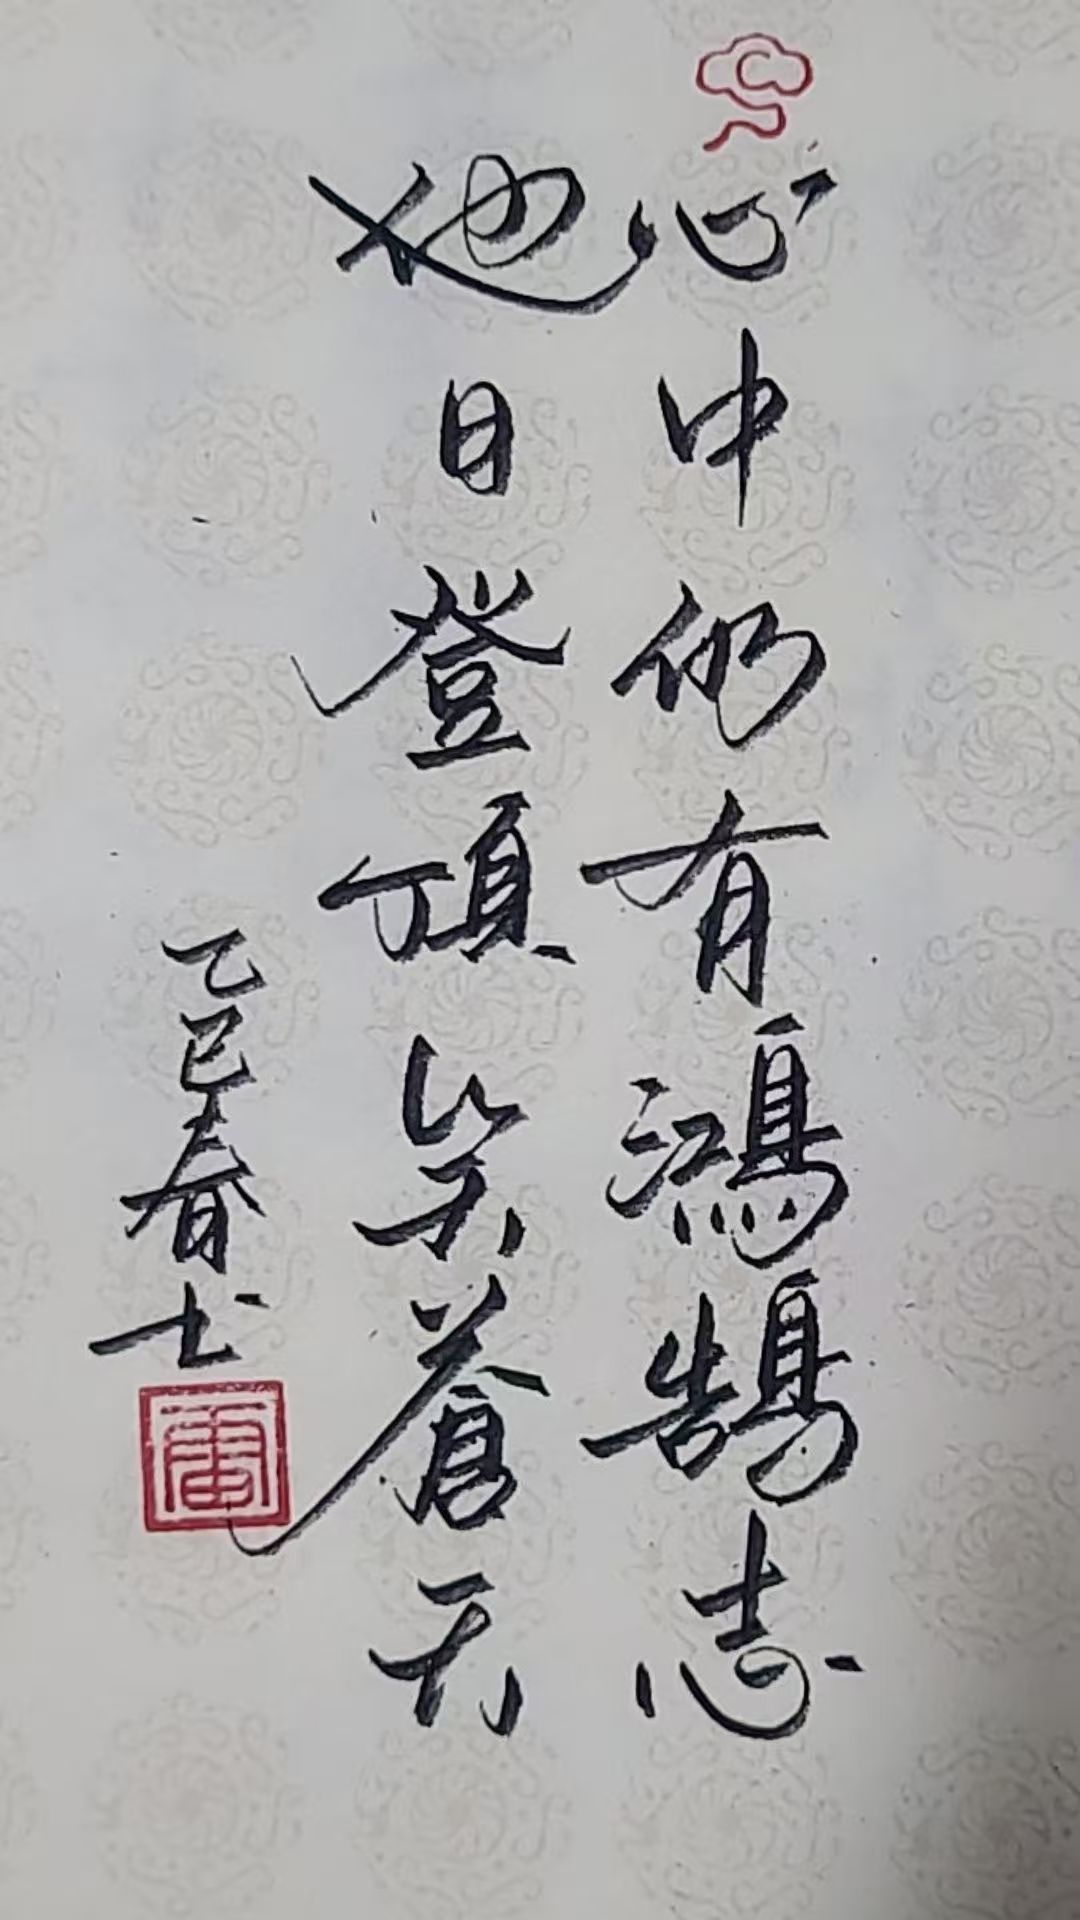 心中仍有鴻鵠志
他日登頂笑蒼天
乙巳春